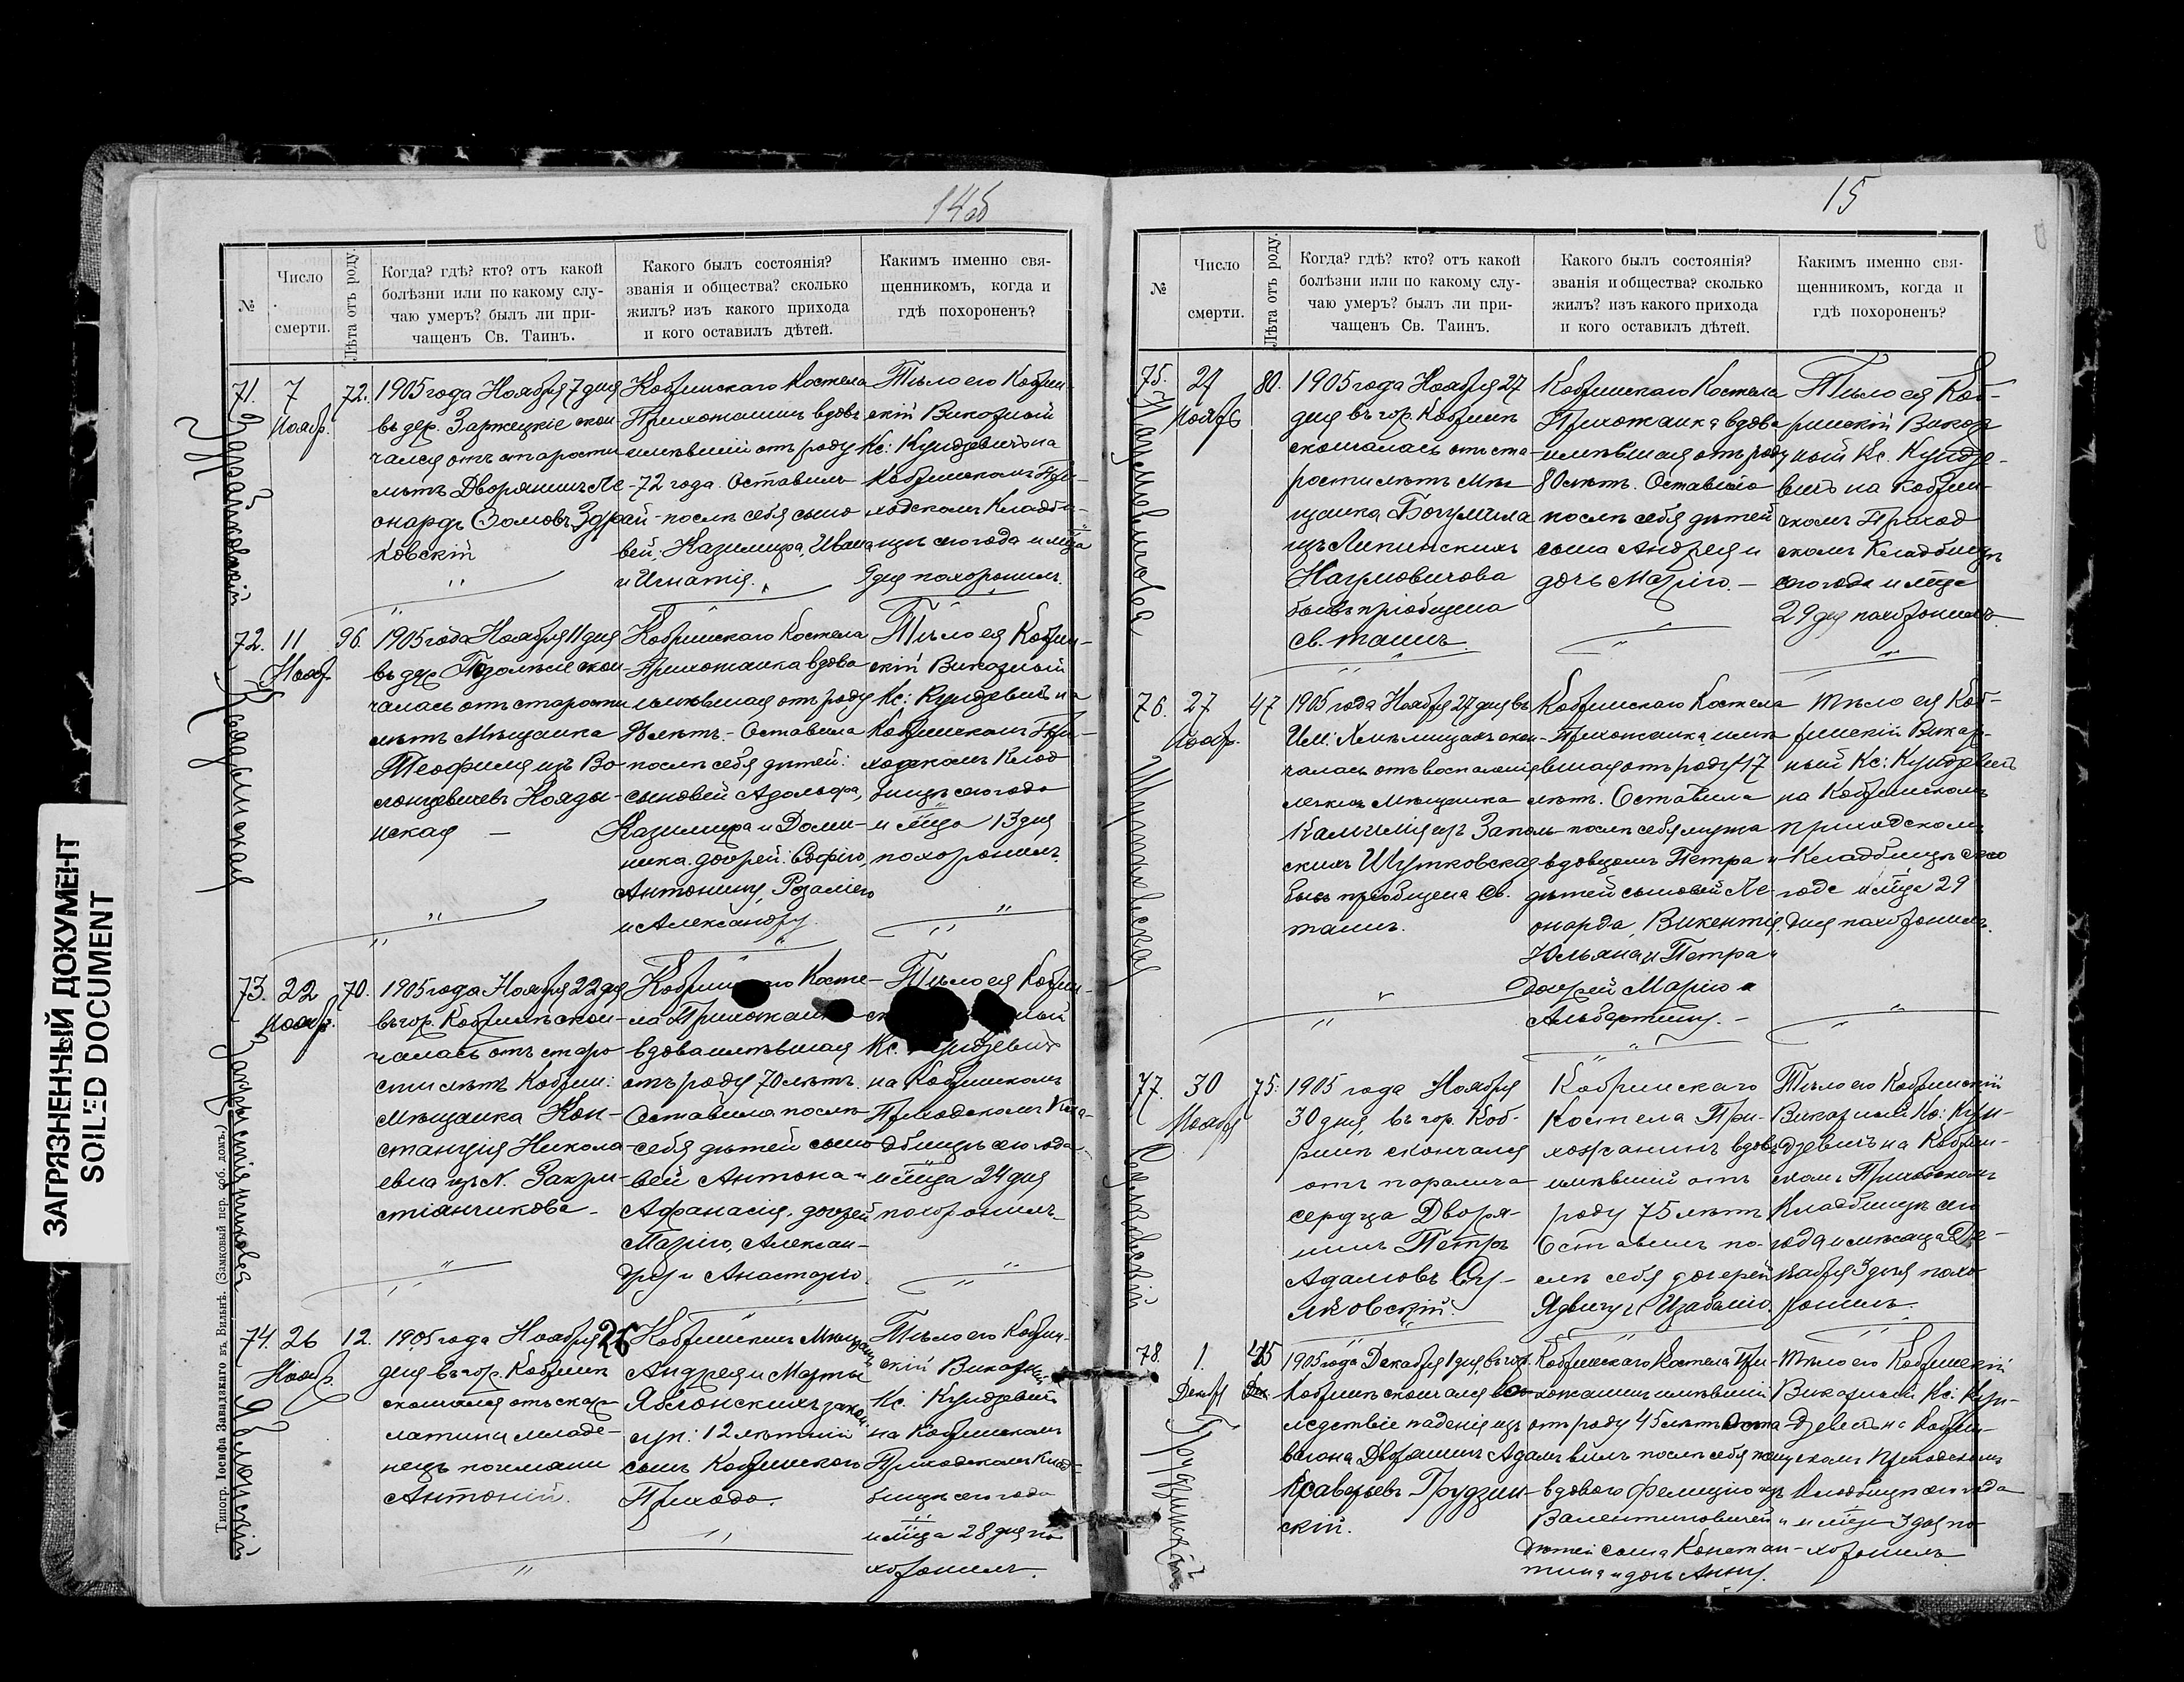 14об
№
Число смерти.
Лѣта отъ роду.
Когда? гдѣ? кто? отъ какой
болѣзни или по какому слу-
чаю умеръ? былъ ли при-
чащенъ Св. Таинъ.
Какого былъ состоянія?
званія и общества? сколько
жилъ? изъ какого прихода
и кого оставилъ дѣтей.
Какимъ именно свя-
щенникомъ, когда и
гдѣ похороненъ?
71.
Здрайковскій
7
Ноябр.
72.
1905 года Ноября 7 дня
въ дер. Заржецкіе скон-
чался отъ старости
лѣтъ Дворянинъ Ле-
онардъ Здрай-
ковскій
Кобринскаго Костела
Прихожанинъ вдовъ
имѣвшій отъ роду
72 года. Оставилъ
послѣ себя сыно
вей, Казимира, Ивана
и Игнатія.
Тѣло его Кобрин-
скій Викарный
Кс: Кундзевичъ на
Кобринскомъ При-
ходскомъ Кладби-
щѣ сего года и м-ца
9 дня похоронилъ.
72.
11
Нояб.
96.
1905 года Ноября 11 дня
въ дер. скон-
чалась отъ старости
лѣтъ Мѣщанка
Теофиля изъ Во-
лонцевичевъ Кояды-
нская
Кобринскаго Костела
Прихожанка вдова
имѣвшая отъ роду
лѣтъ. Оставила
послѣ себя дѣтей:
сыновей Адольфа,
Казимира и Доми-
ника. дочерей: Софію,
Антонину, Розалію
и Александру.
Тѣло ея Кобрин-
скій Викарный
Кс: Кундзевичъ на
Кобринскомъ При-
ходскомъ Клад
бищѣ сего года
и м-ца 13 дня
похоронилъ.
73.
22
Нояб.
70.
1905 года Ноября 22 дня
въ гор. Кобринѣ скон-
чалась отъ старо
сти лѣтъ Кобрин:
Мѣщанка Кон-
станція Никола-
евна изъ N. Закри-
стіанчикова
Косте-
ла
вдова имѣвшая
отъ роду 70 лѣтъ.
Оставила послѣ
себя дѣтей сыно
вей Антона и
Афанасія, дочерей
Марію, Алексан-
дру и Анастазію.
Тѣло ея Кобрин-
Кс.
на Кобринскомъ
Приходскомъ Кла-
дбищѣ сего года
и м-ца 24 дня
похоронилъ
74.
Яблонскій
26
Ноябр.
12.
1905 года Ноября 26
дня въ гор. Кобринѣ
скончался отъ скар-
латины младе-
нецъ по имени
Антоній.
Кобринскихъ Мѣщанъ
Андрея и Марты
Яблонскихъ закон.
суп: 12 лѣтній
сынъ Кобринскаго
Прихода.
Тѣло его Кобрин-
скій Викарный
Кс. Кундзевичъ
на Кобринскомъ
Приходскомъ Клад-
бищѣ сего года
и м-ца 28 дня по
хоронилъ.
Типогр. Іосифа Завадзкаго въ Вильнѣ. (Замковый пер. соб. домъ.)
ЗАГРЯЗНЕННЫЙ ДОКУМЕНТ
SOILED DOCUMENT
15
№
Число смерти.
Лѣта отъ роду.
Когда? гдѣ? кто? отъ какой
болѣзни или по какому слу-
чаю умеръ? былъ ли при-
чащенъ Св. Таинъ.
Какого былъ состоянія?
званія и общества? сколько
жилъ? изъ какого прихода
и кого оставилъ дѣтей.
Какимъ именно свя-
щенникомъ, когда и
гдѣ похороненъ?
75.
Нагумовичова
27
Нояб
80.
1905 года Ноября 27
дня въ гор. Кобринѣ
скончалась отъ ста-
рости лѣтъ Мѣ
щанка Богумила
изъ Липинскихъ
Нагумовичова
бывъ пріобщена
св. таинъ.
Кобринскаго Костела
Прихожанка вдова
имѣвшая отъ роду
80 лѣтъ. Оставила
послѣ себя дѣтей
сына Андрея и
дочь Марію.
Тѣло ея Коб-
ринскій Викар
ный Кс. Кундзе-
вичъ на Кобрин-
скомъ Приход
скомъ Кладбищѣ
сего года и м-ца
29 дня похоронилъ
76.
Шутковская
27
Нояб.
47
1905 года Ноября 27 дня въ
скон-
чалась отъ воспаленія
легкихъ Мѣщанка
Камилія изъ Заполь-
скихъ Шутковская
бывъ пріобщена Св.
таинъ.
Кобринскаго Костела
Прихожанка имѣ
вшая отъ роду 47
лѣтъ. Оставила
послѣ себя мужа
вдовцомъ Петра и
дѣтей сыновей Ле-
онарда, Викентія,
Юльяна и Петра и
дочерей Марію и
Альбертину.
Тѣло ея Коб-
ринскій Викар-
ный Кс: Кундзевичъ
на Кобринскомъ
приходскомъ
Кладбищѣ сего
года и м-ца 29
дня похоронилъ.
77.
30
Ноября
75.
1905 года Ноября
30 дня, въ гор. Коб-
ринѣ скончался
отъ паралича
сердца Дворя-
нинъ Петръ
Адамовъ
Кобринскаго
Костела При-
хожанинъ вдовъ
имѣвшій отъ
роду 75 лѣтъ
Оставилъ по-
слѣ себя дочерей
Ядвигу и Изабелію.
Тѣло его Кобринскій
Викарный Кс: Кун-
дзевичъ на Кобрин-
скомъ Приходскомъ
Кладбищѣ сего
года и мѣсяца Де-
кабря 3 дня похо
ронилъ.
78.
Грудзинскій
1.
Декабр
45
1905 года Декабря 1 дня, въ гор.
Кобринѣ скончался во
слѣдствіе паденія изъ
вагона Дворянинъ Адамъ
Ксаверьевъ Грудзин-
скій.
Кобринскаго Костела При-
хожанинъ имѣвшій
отъ роду 45 лѣтъ Оста
вилъ послѣ себя жену
вдового Фелицію изъ
Валентиновичей и
дѣтей сына Констан-
тина и дочь Анну.
Тѣло его Кобринскій
Викарный Кс. Кун-
дзевичъ на Кобрин-
скомъ Приходскомъ
Кладбищѣ сего года
и м-ца 3 дня по
хоронилъ